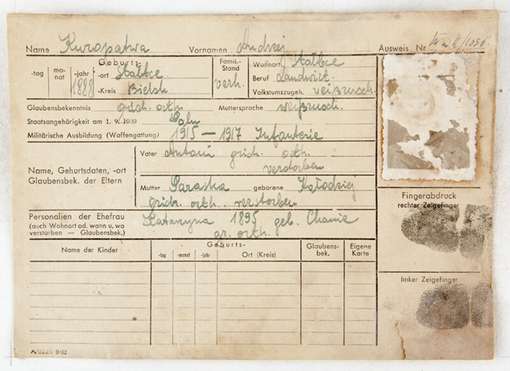 Name Kuropatwa Vornamen Andrzej Ausweis Nr.
Geburts- Familien-Stand Wohnort Stołbce
-tag monat -jahr -ort Stołbce verh. Beruf Landwirt
1888 -Kreis Bielsk Volkstumszugeh. weißrusch.
Glaubensbekenntnis griech. orth. Muttersprache weißrusch.
Staatsangehörigkeit am 1. 9. 1939 Poln
Militärische Ausbildung (Waffengattung) 1915 — 1917 Infanterie
Name, Geburtsdaten, -ort
Glaubensbek. der Eltern
Vater Antoni griech. orth.
verstorben
Mutter Paraska geborene
griech. orth. verstorben
Personalien der Ehefrau
(auch Wohnort ad. wann u. wo
verstorben — Glaubensbek.)
Katarzyna 1895 geb.
gr. orth.
Name der Kinder Geburts- Glaubens-bek. Eigene Karte
-tag -monat -jahr Ort (Kreis)
Fingerabdruck
rechter Zeigefinger
linker Zeigefinger